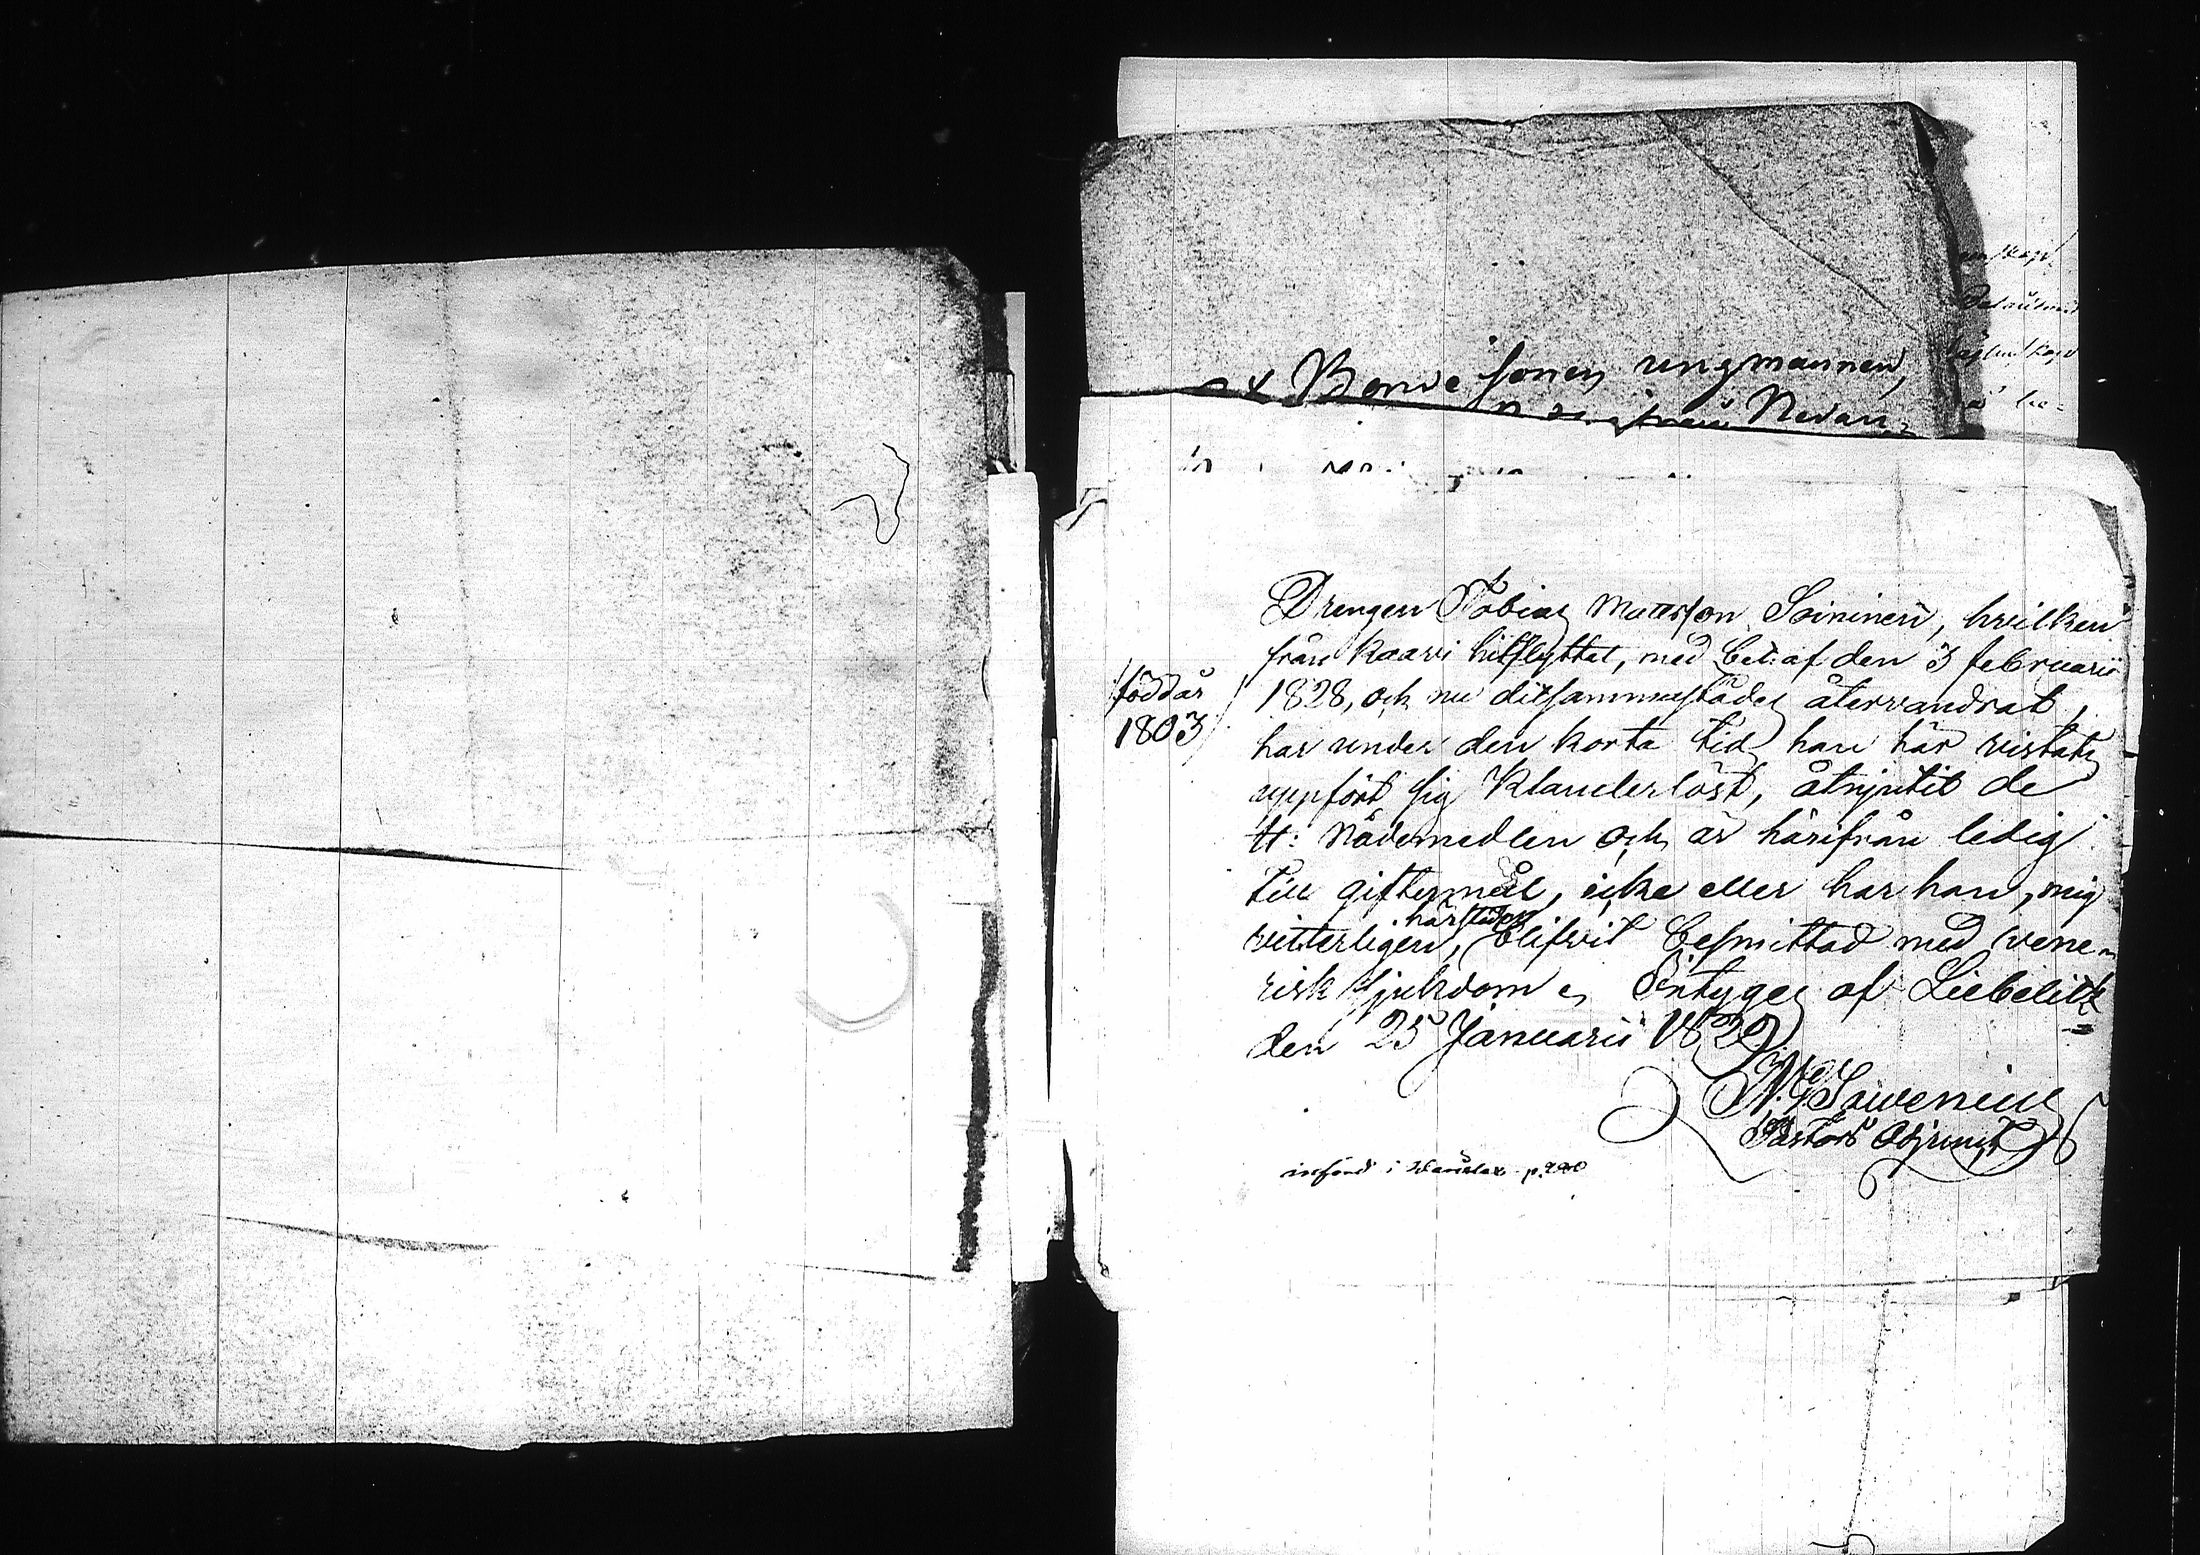 Bonde sonen ungmannen,
Nedan
Drengen Tobias Mattsson Soininen, hvilken
från Kaavi hitflyttat, med bet: af den 3 februarii
/född år
1803/
1828, och nu ditsammastädes återvandrat,
har under den korta tid han här vistats
uppfört sig klanderlöst, åtnjutit de
H: Nådemedlen och är härifrån ledig
till giftermål, icke eller har han, mig
härstädes
vitterligen, blifvit besmittad med vene-
risk sjukdom, Intygas af Liebelitz
den 25 Januarii 1829
Pastors Adjunct
införd i p.